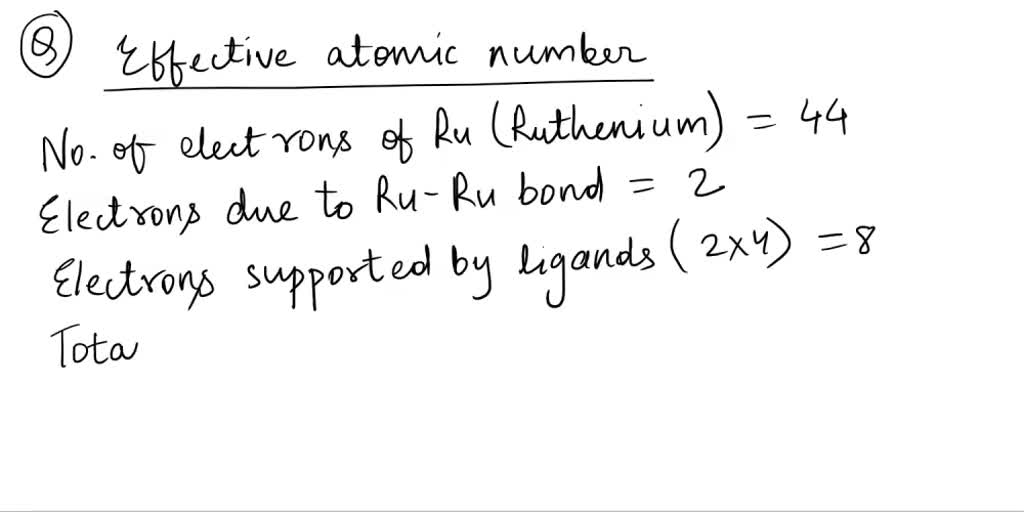 Q Effective atomic number
No. of electrons of Ru (Ruthenium) = 44
Electrons due to Ru-Ru bond = 2
Electrons supported by ligands (2x4) = 8
Tota